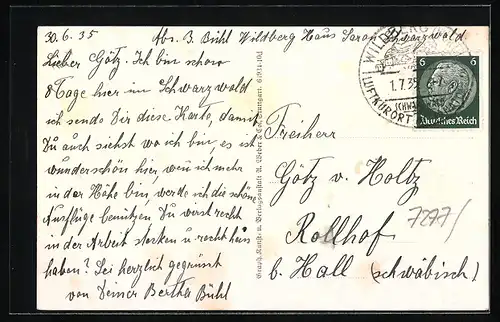 30.6.35 Abs. B. Bühl Wildberg Haus Saron Schwarzwald.
Lieber Götz. Ich bin schon
8 Tage hier im Schwarzwald
ich sende Dir diese Karte, damit
Du auch siehst wo ich bin, es ist
wunderschön hier, wen ich mehr
in der Höhe bin, werde ich die schöne
Ausflüge benützen. Du wirst recht
in der Arbeit stecken u. recht heis
haben? Sei herzlich gegrüsst
von Deiner Bertha Bühl
Graph. Kunst- u. Verlagsanstalt A. Weber & Co., Stuttgart.
WILDBERG
1.7.35
LUFTKURORT
6 6
Deutsches Reich
Freiherr
Götz v. Holtz
Rollhof
b. Hall (schwäbisch)
7277/